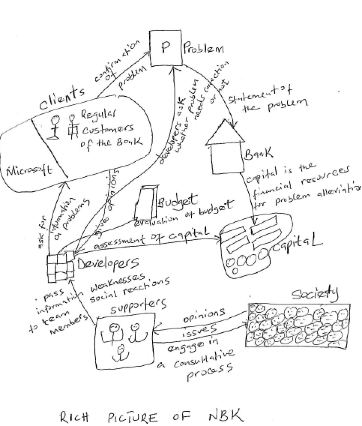 P Problem
confirmation
of
problem
clients
Regular
Customers
of the Bank
Microsoft
developers ask
whether problem
needs correction
or not
Statement of
the problem
Bank
capital is the
financial resources
for problem alleviation
ask for
information
of problems
give opinions
Budget
evaluation of budget
assessment of capital
Capital
Developers
pass
information
to team
members
weaknesses
social reactions
supporters
Society
opinions
issues
engage in
a consultative
process
RICH PICTURE OF NBK